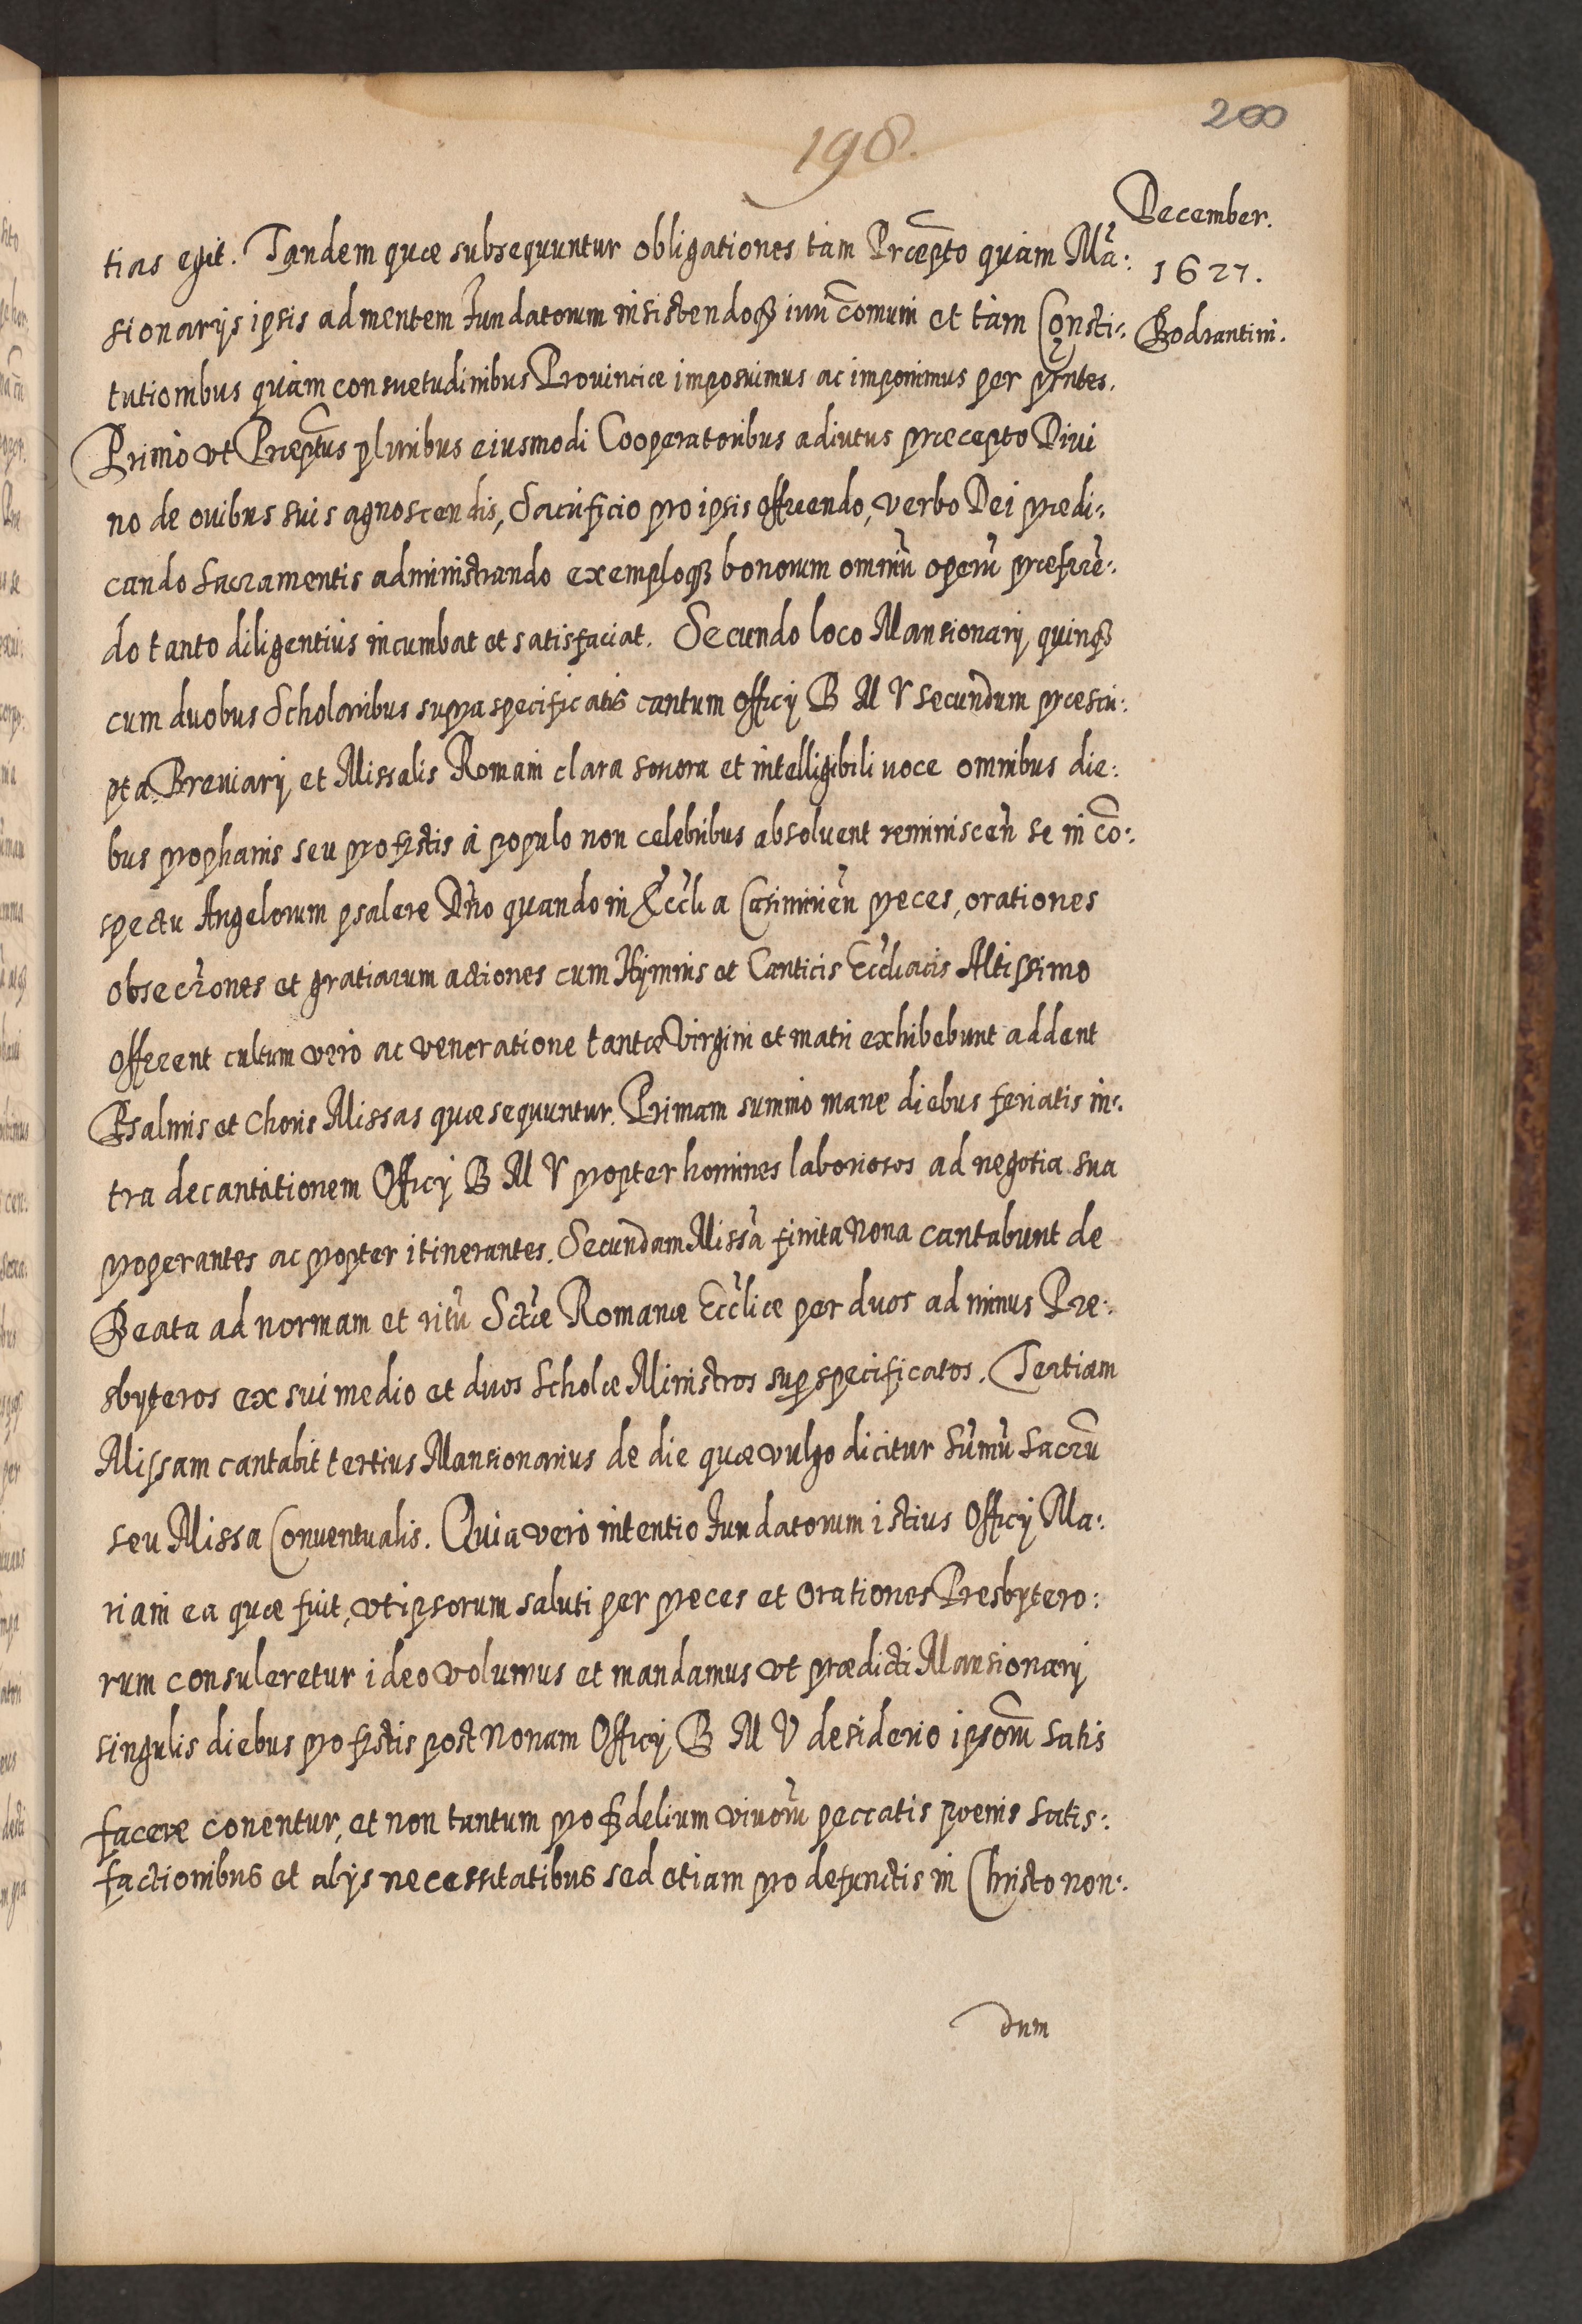 200
198.
December.
1627.
Bodzantini.
tias egit. Tandem quæ subsequuntur obligationes tàm Præpto quàm Mã:
sionarijs ipsis ad mentem Fundatorum insistendoq iuri cõmuni et tàm Consti:
tutionibus quàm consuetudinibus Prouinciæ imposuimus ac imponimus per pñtes.
Primò vt Præptus pluribus eiusmodi Cooperatoribus adiutus præcepto Diui
no de ouibus suis agnoscendis, Sacrificio pro ipsis offerendo, verbo Dei prædi:
cando Sacramentis administrando exemploq bonorum omniũ operũ præferẽ:
do tanto diligentiùs incumbat et satisfaciat. Secundo loco Mansionarij quinq
cum duobus Scholaribus supra specificatis cantum Officij B M V secundum præscri:
pta Breuiarij et Missalis Romani clara sonora et intelligibili uoce omnibus die:
bus prophanis seu profestis à populo non celebribus absoluent reminiscen̄ se in cõ:
spectu Angelorum psalere Dño quando in Eccl̃ia Casimirien̄ preces, orationes
obsecrõnes et gratiarum actiones cum Hymnis et Canticis Eccl̃iacis Altissimo
offerent cultum verò ac veneratione tantæ Virgini et matri exhibebunt addent
Psalmis et choris Missas quæ sequuntur. Primam summo mane diebus feriatis in:
tra decantationem Officij B M V propter homines laboriosos ad negotia sua
properantes ac propter itinerantes. Secundam Missã finita Nona cantabunt de
Beata ad normam et ritũ Sctæ Romanæ Eccl̃iæ per duos ad minus Præ:
sbyteros ex sui medio et duos Scholæ Ministros sup specificatos. Tertiam
Missam cantabit tertius Mansionarius de die quæ vulgo dicitur Sũmũ Sacrũ
seu Missa Conuentualis. Quia verò intentio Fundatorum istius Officij Ma:
riani ea quæ fuit, vt ipsorum saluti per preces et orationes Presbytero:
rum consuleretur ideo volumus et mandamus vt prædicti Mansionarij
singulis diebus profestis post Nonam Officij B M V desiderio ipsorũ satis
facere conentur, et non tantum pro fidelium viuorũ peccatis poenis satis:
factionibus et alijs necessitatibus sed etiam pro defunctis in Christo non:
dum